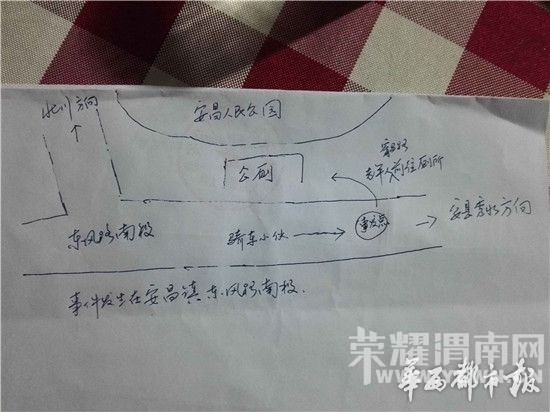 北川方向
安昌人民公园
公厕
老年人前往厕所
安县秀水方向
东风路南段
骑车小伙
事发点
事件发生在安昌镇东风路南段.
荣耀渭南网
华西都市报